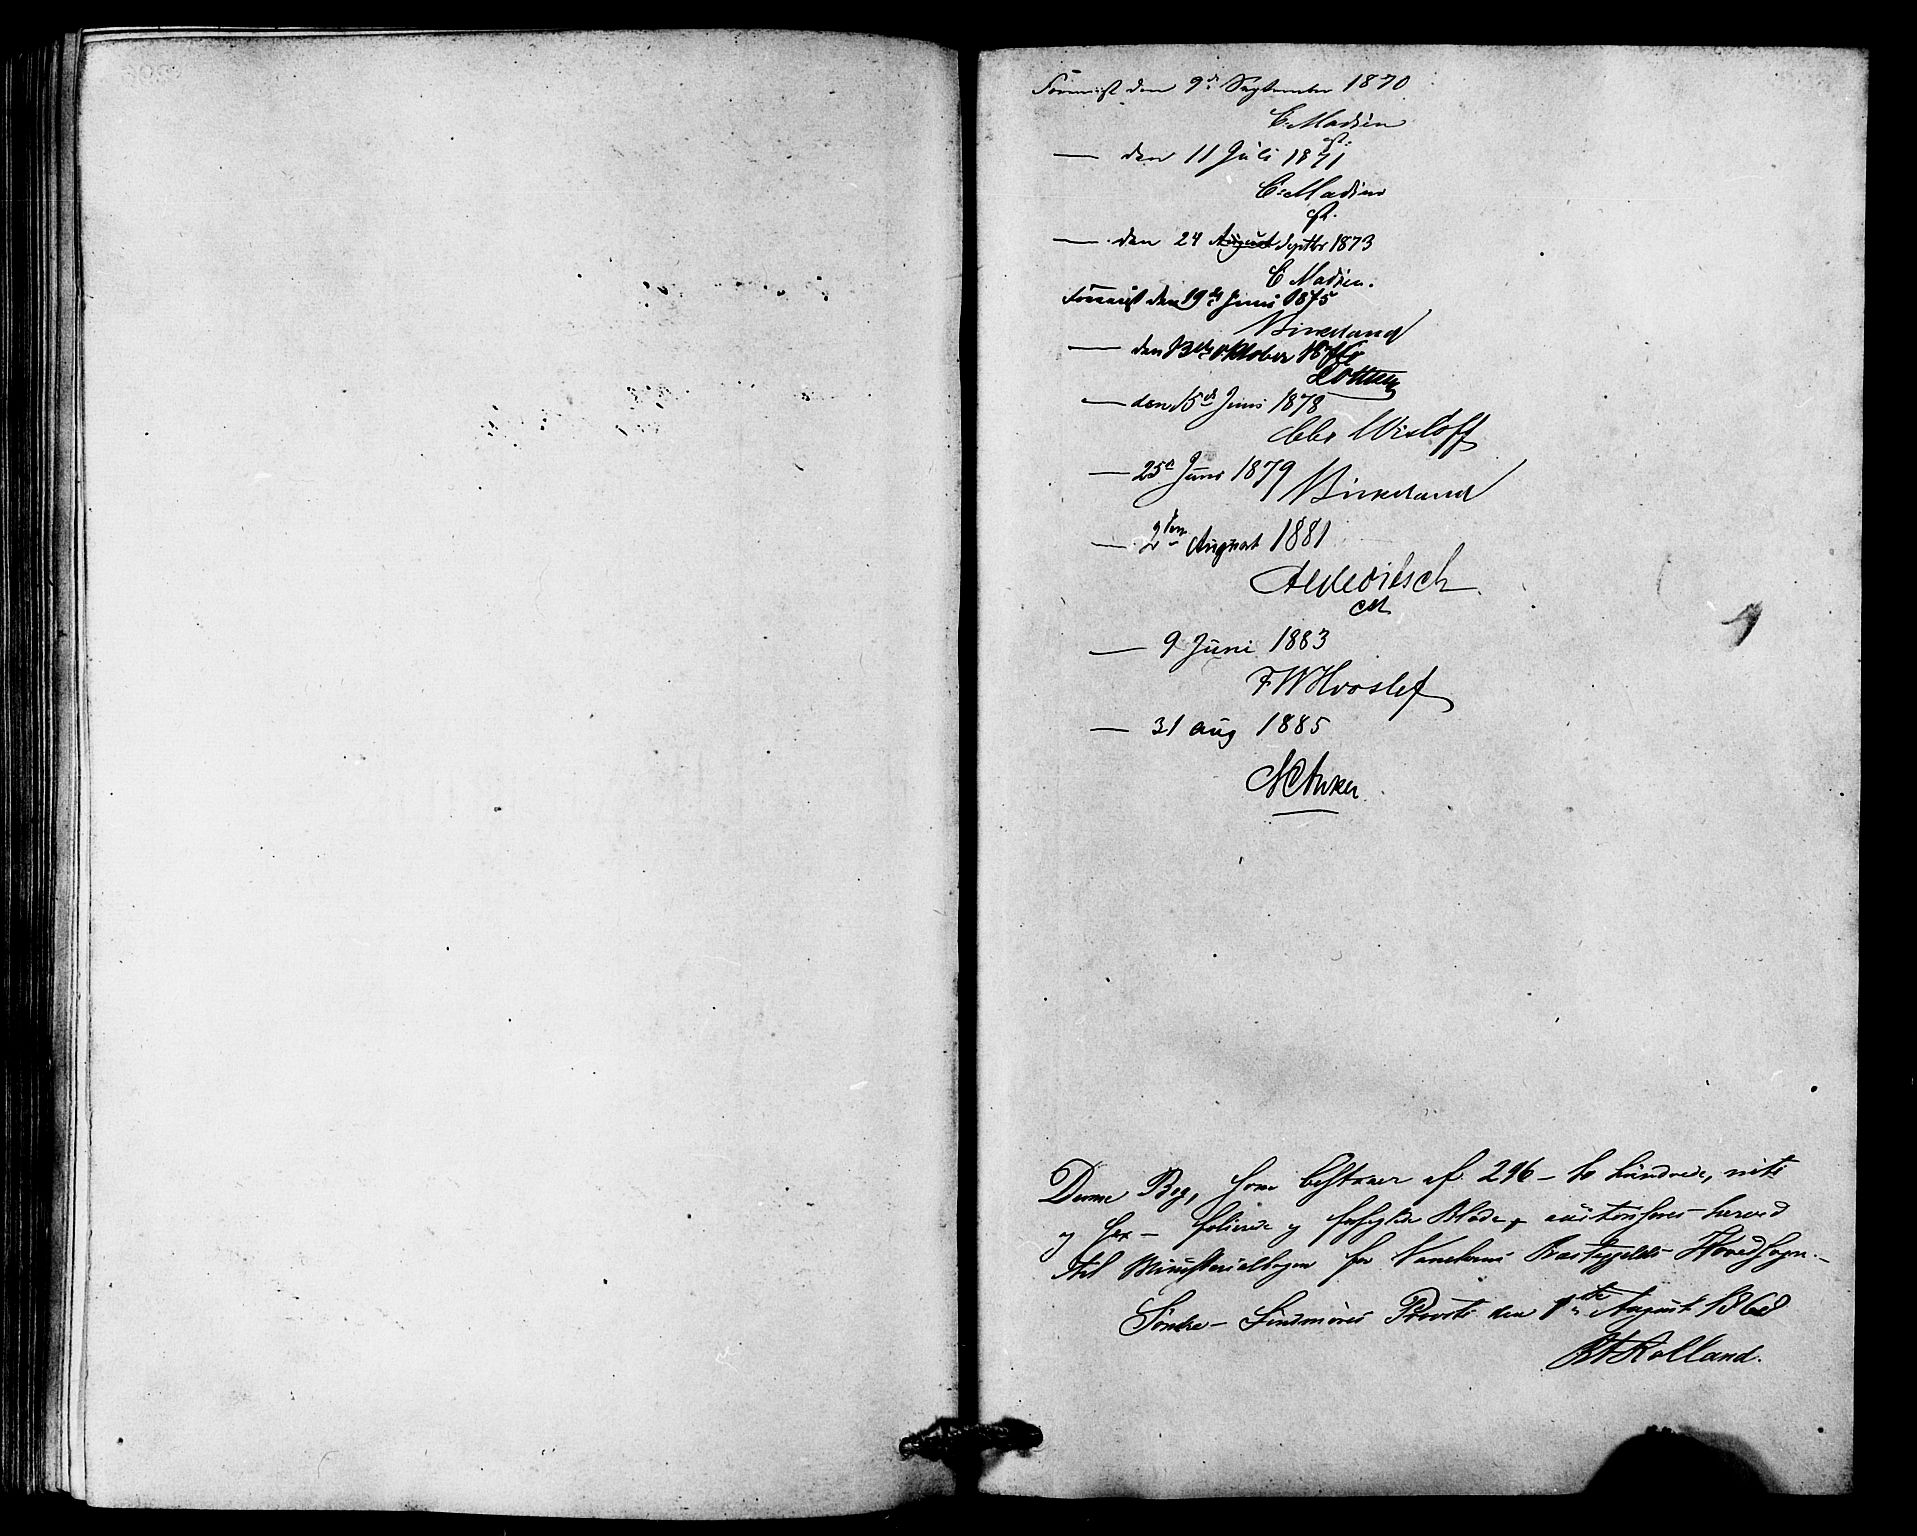 Forevist den 9de September 1870
C. Madsen
cst.
— den 11 Juli 1871
C. Madsen
cst.
— den 24 August Septbr 1873
C Madsen.
Forevist den 19de Juni 1875
Birkeland
— den 13de Oktober 1876
— den 15de Juni 1878
Ebbr Wisløff
— 25de Juni 1879 Birkeland
— 2den August 1881
cst
— 9 Juni 1883
FWHvoslef
— 31 aug 1885
Denne Bog, som bestaaer af 296 – to hundrede, niti
og sex – folierede og forseglede Blade, autoriseres herved
til Ministerialbog for Vanelvens Præstegjelds Hovedsogn. –
Søndre – Søndmøres Provsti den 1ste August 1868
Rolland.